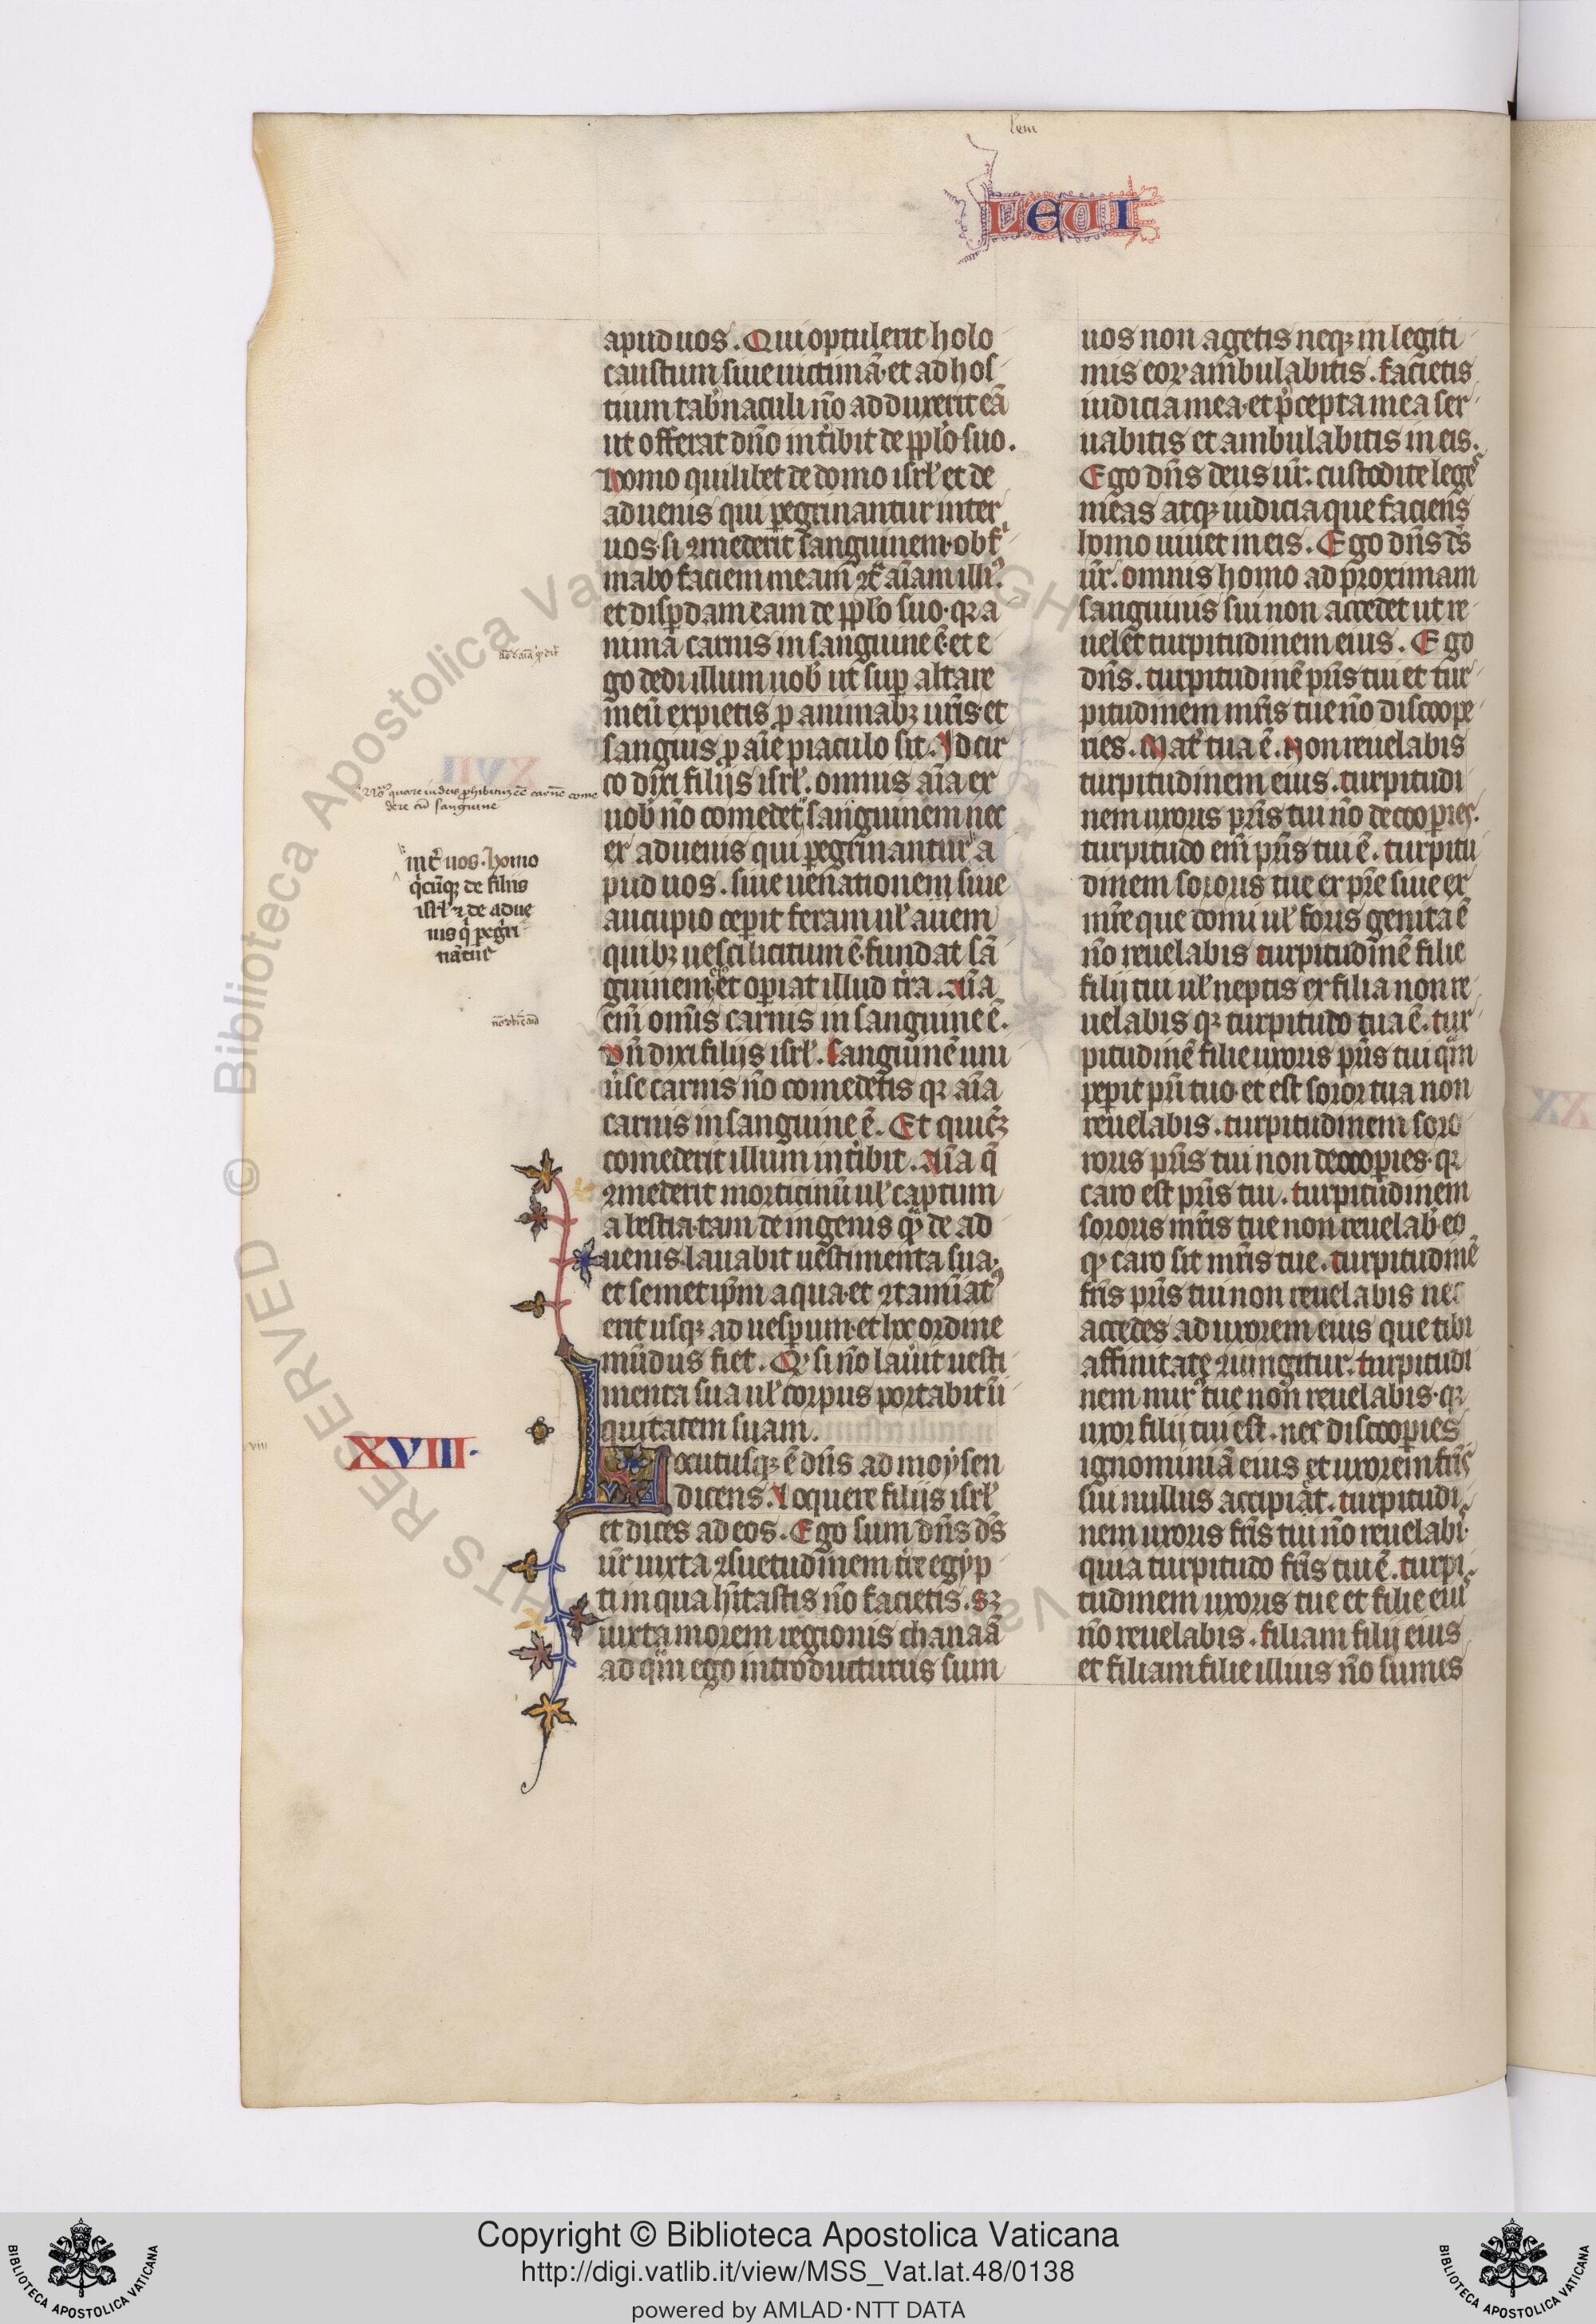 lem
LEUI
apud uos. Qui optulerit holo
caustum siue uictimā· et ad hos
tium tab̃naculi nō adduxerit eā
ut offerat dño int̾ibit de pplo suo.
homo quilibet de domo isrl̾ et de
aduenis qui peregrinantur inter
uos· si ꝯmederit sanguinem· obfir
mabo faciem meam ꝯtᵃ aīam illiꝰ.
et disp̱dam eam de pplo suo· qꝛ a
nima carnis in sanguine ē· et e
go dedi illum uob̾ ut sup̱ altare
meū expietis p̱ animabꝫ ur̄is· et
sanguis p̱ aīe piaculo sit. Idcir
co dixi filijs isrl̾. omnis aīa ex
uob̾ nō comedet sanguinem nec
ex aduenis qui pegrinantur a
pud uos. siue uenationem siue
aucupio cep̱it feram ul̾ auem
quibꝫ uesci licitum ē· fundat sā
guinem eiꝰ et op̱iat illud tr̄a. Aīa
enī om̄is carnis in sanguine ē.
Vn̄ dixi filijs isrl̾. Sanguinē uni
ũse carnis nō comedetis qꝛ aīa
carnis in sanguine ē. Et quicūqꝫ
comederit illum int̾ibit. Aīa q̄
ꝯmederit morticinū ul̾ captum
a bestia· tam de ingenis qᵃ de ad
uenis· lauabit uestimenta sua·
et semetip̄m aqua· et ꝯtamīatꝰ
erit usqꝫ ad uesp̱um· et hoc ordine
mūdus fiet. Qꝫ si nō lauit uesti
menta sua ul̾ corpus portabit ini
quitatem suam.
Locutusqꝫ ē dn̄s ad moysen
dicens. Loquere filijs isrl̾
et dices ad eos. Ego sum dn̄s dс̄
ur̄ iuxta ꝯsuetudinem tr̄e egyp
ti in qua hītastis nō facietis. sꝫ
iuxta morem regionis chanaā
ad qᵃm ego introducturus sum
nō quare iudeis phibitū ēē carnē come
dere cū sanguine
int̾ uos. homo
qͥcūqꝫ de filiis
isrl̾ ꝯ de adue
nis qͥ pegri
nātur
XVIII
uos non agetis neqꝫ in legiti
mis eoꝝ ambulabitis. facietis
iudicia mea· et p̄cepta mea ser
uabitis et ambulabitis in eis.
Ego dn̄s deus ur̄. custodite leges
meas atqꝫ iudicia que faciens
homo uiuet in eis. Ego dn̄s ds̄
ur̄. omnis homo ad proximam
sanguinis sui non accedet ut re
uelet turpitudinem eius. Ego
dn̄s. turpitudinē pr̄is tui et tur
pitudinem mr̄is tue nō discoope
ries. Mat̾ tua ē. Non reuelabis
turpitudinem eius. turpitudi
nem uxoris pr̄is tui nō decoop̱ies.
turpitudo enī pr̄is tui ē. turpitu
dinem sororis tue ex pr̄e siue ex
mr̄e que domi ul̾ foris genita ē
nō reuelabis turpitudinē filie
filij tui ul̾ neptis ex filia non re
uelabis qꝛ turpitudo tua ē. tur
pitudinē filie uxoris pr̄is tui qᵃm
pep̱it pr̄i tuo· et est soror tua non
reuelabis. turpitudinem soro
roris pr̄is tui non decoop̱ies· qꝛ
caro est pr̄is tui. turpitudinem
sororis mr̄is tue non reuelab̾ eo
qꝫ caro sit mr̄is tue. turpitudinē
fr̄is pr̄is tui non reuelabis nec
accedes ad uxorem eius que tibi
affinitate ꝯiungitur. turpitudi
nem nurᵘ tue non reuelabis· qꝛ
uxor filij tui est. nec discoop̱ies
ignominiā eius et uxorem fr̄is
sui nullus accipiat. turpitudi
nem uxoris fr̄is tui nō reuelabis
quia turpitudo fr̄is tui ē. turpi
tudinem uxoris tue et filie eius
nō reuelabis. filiam filij eius
et filiam filie illius nō sumes
© Biblioteca Apostolica Vaticana
RIGHTS RESERVED
Copyright © Biblioteca Apostolica Vaticana
http://digi.vatlib.it/view/MSS_Vat.lat.48/0138
powered by AMLAD·NTT DATA
BIBLIOTECA APOSTOLICA VATICANA
BIBLIOTECA APOSTOLICA VATICANA